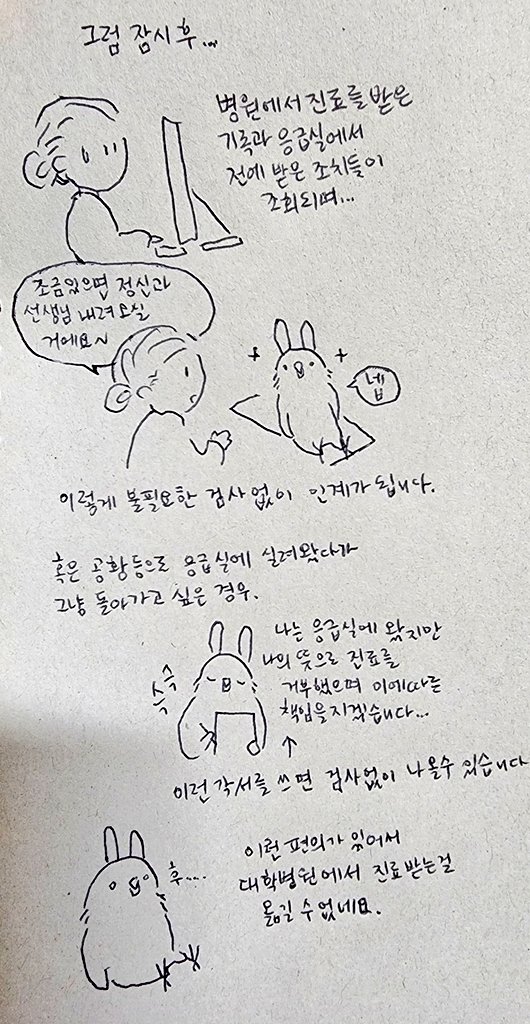 그럼 잠시후...
병원에서 진료를 받은
기록과 응급실에서
전에 받은 조치들이
조회되며...
조금있으면 정신과
선생님 내려오실
거에요~
넵
이렇게 불필요한 검사없이 인계가 됩니다.
혹은 공황등으로 응급실에 실려왔다가
그냥 돌아가고 싶은 경우.
나는 응급실에 왔지만
나의 뜻으로 진료를
거부했으며 이에따른
책임을지겠습니다...
슥슥
이런 각서를 쓰면 검사없이 나올수 있습니다
이런 편의가 있어서
대학병원에서 진료받는걸
옮길 수 없네요.
후....